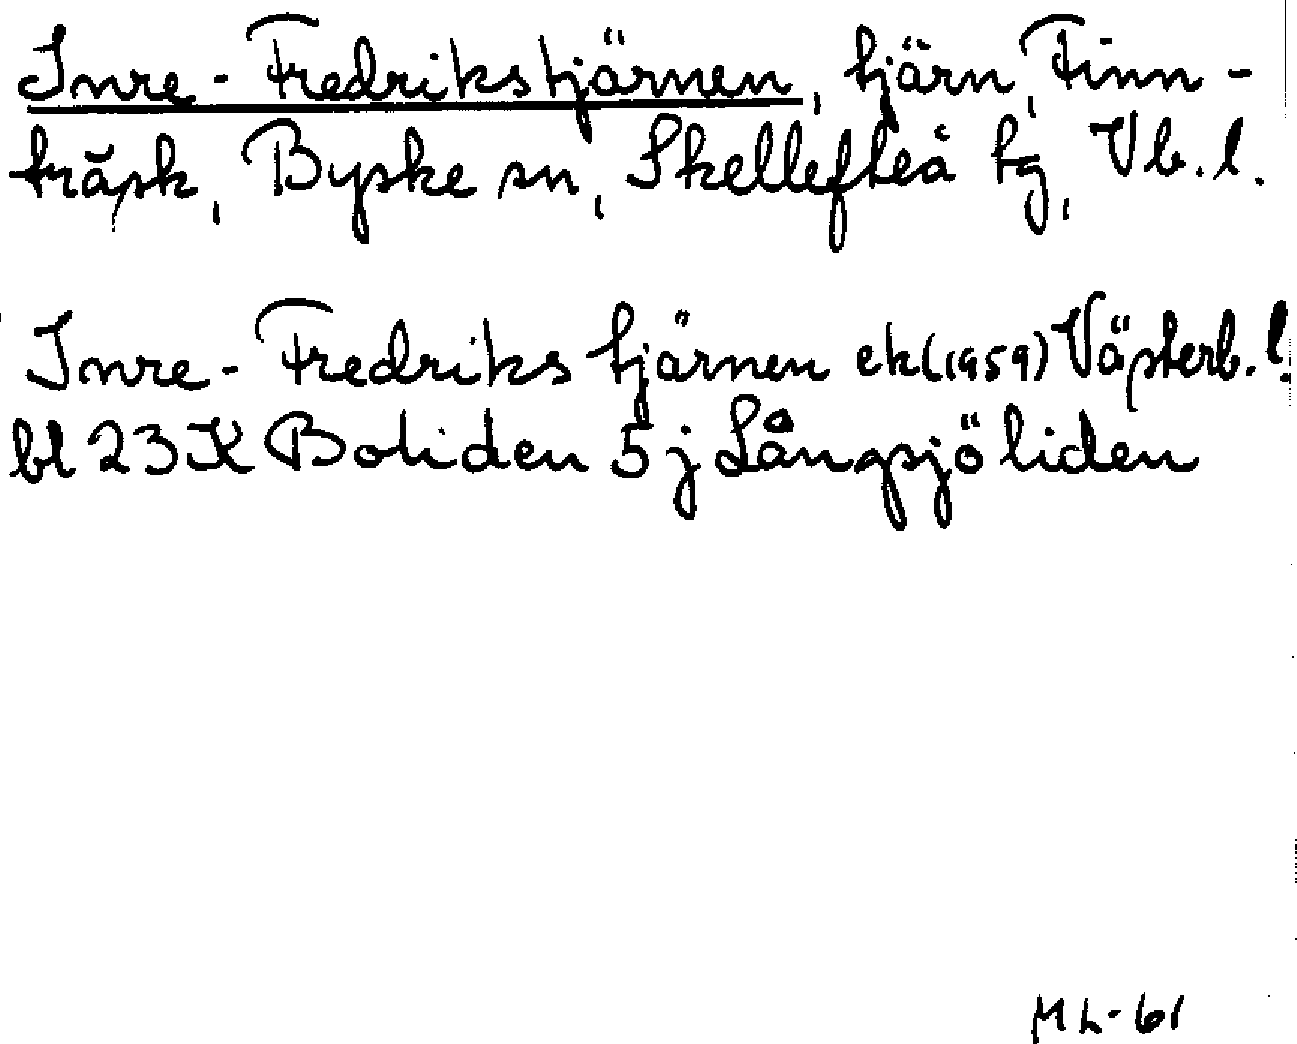 Inre-Fredrikstjärnen, tjärn, Finn-
träsk, Byske sn, Skellefteå tg, Vb.l.
Inre-Fredriks tjärnen ek(1959) Västerb.l.
bl 23 K Boliden 5 j Långsjöliden
ML-61